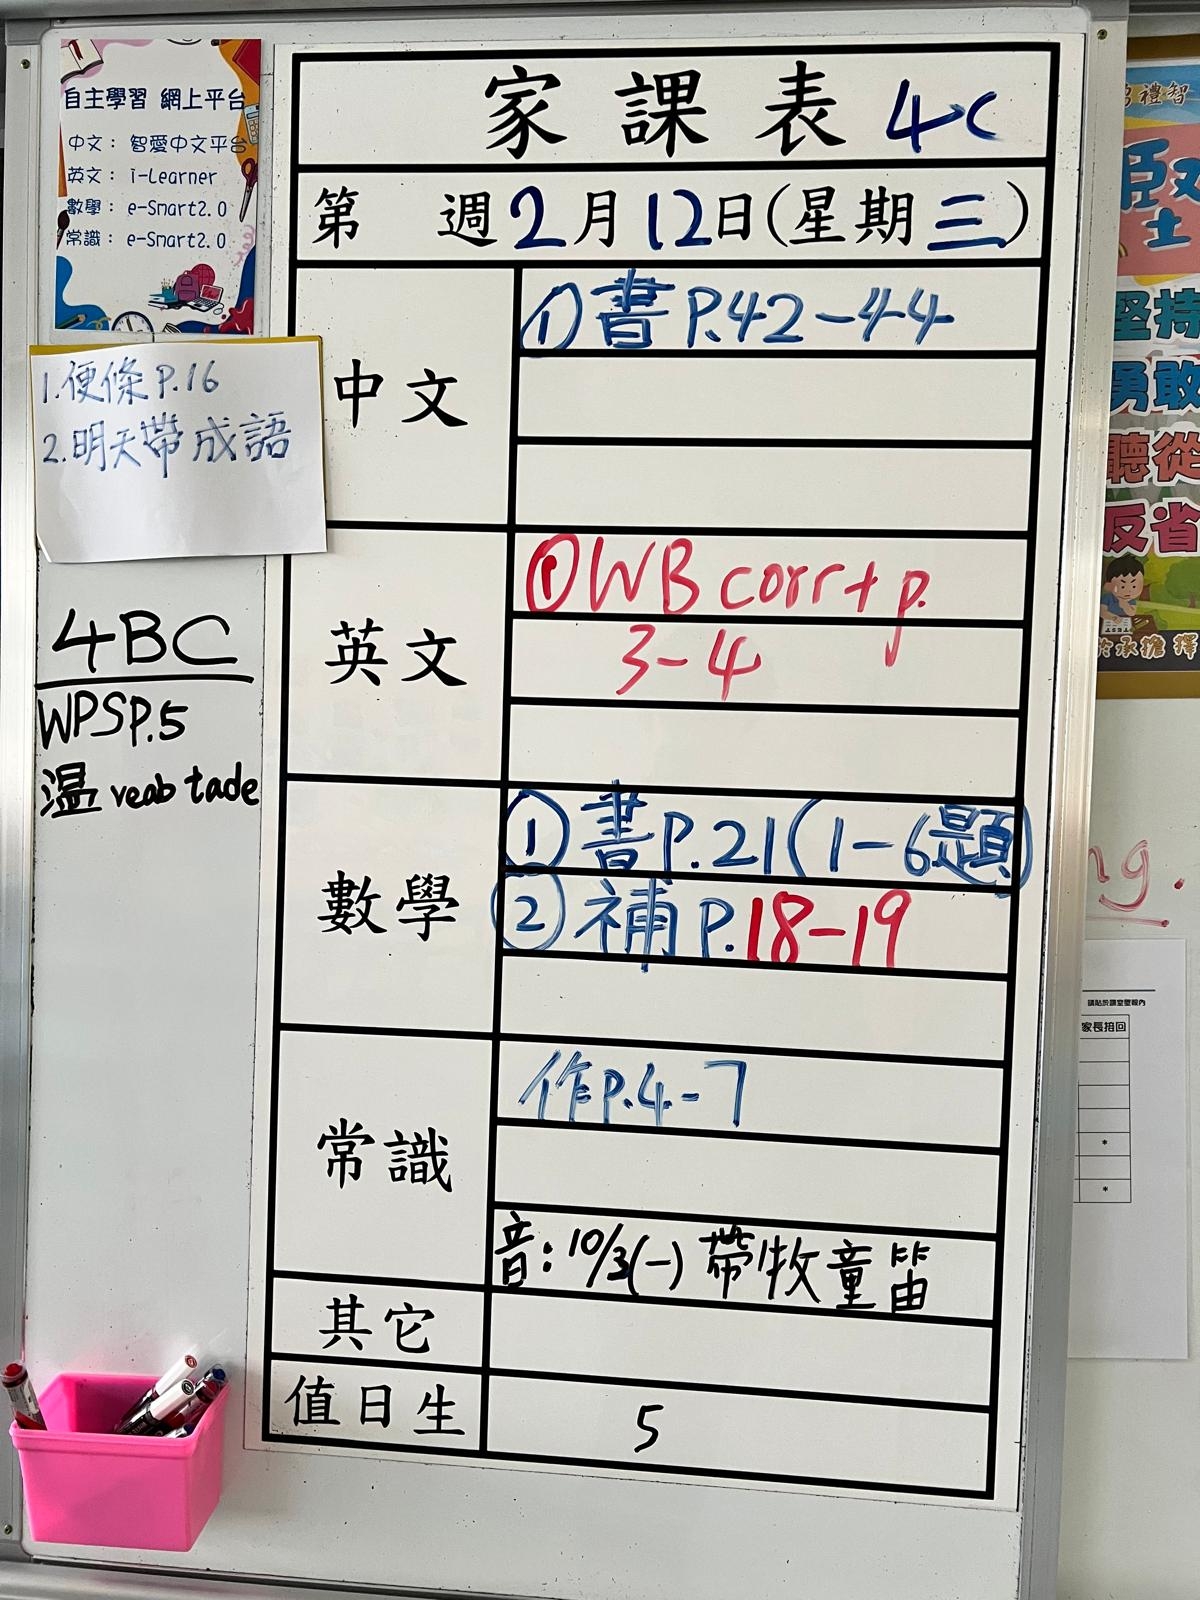 自主學習 網上平台
中文： 智愛中文平台
英文： i-Learner
數學： e-Smart2.0
常識： e-Smart2.0
1.便條P.16
2.明天帶成語
4BC
WPSP.5
溫 veab tade
家課表 4C
第 週2月12日(星期三)
中文
①書P.42-44
英文
①WB corr+p.
3-4
數學
①書P.21(1-6題)
②補P.18-19
常識
作P.4-7
音:10/3(一) 帶牧童笛
其它
值日生
5
禮智
堅持
勇敢
聽從
反省
承擔
ng.
請貼於課室壁報內
家長
*
*